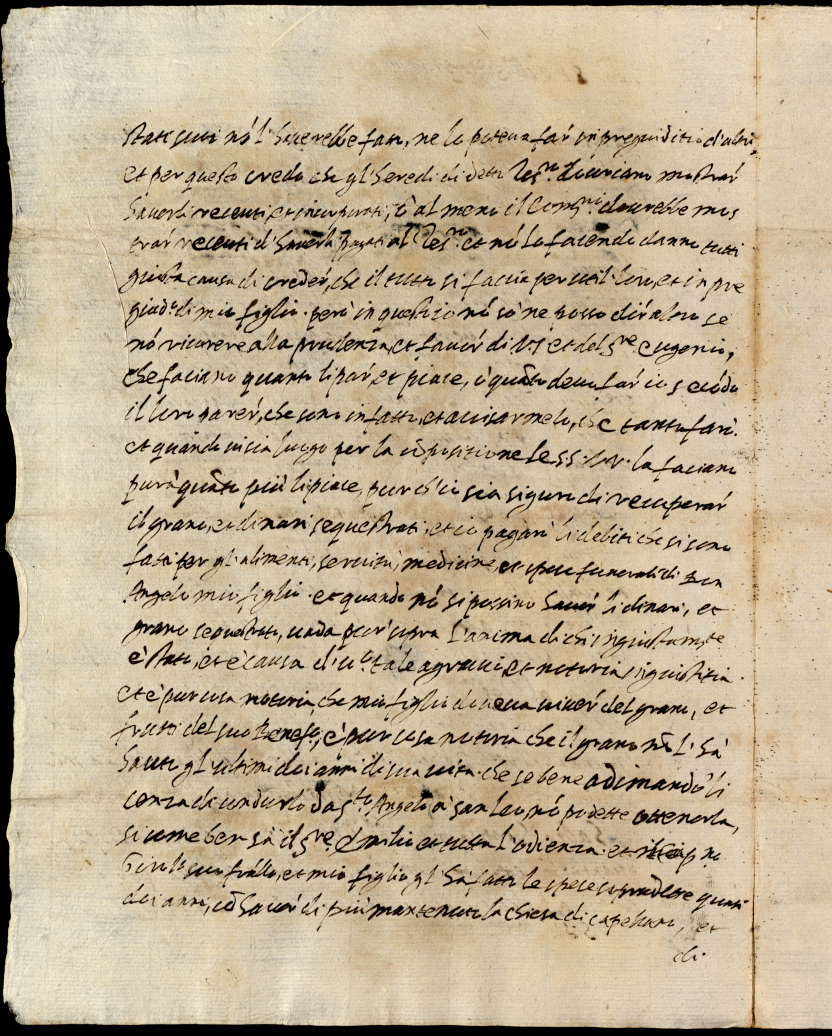 stati suoi nó l'haverebbe fatto, ne lo poteva far in pregiuditio d'altri,
et per questo credo che gl'heredi di detto Tes.ro doveriano mostrar
haverli recenti et incorporati, ó al meno il Com.rio doverebbe mos
trar recenti d'haverli pagati al Tes.ro et nó lo facendo danno tutti
giusta causa di creder, che il tutto si faccia per util loro, et in pre
giud.o di mio figlio. peró in questo io nó só ne posso dir altro se
nó ricorrere alla prudenza, et favor di V.S. et del S.re Eugenio,
che faciano quanto li par, et piace, ó quáto devo far io secódo
il loro parer, che sono in fatto, et avisarmelo, che tanto faró.
et quando vi sia luogo per la cópositione le SS. VV. la faciano
purá quáto piú li piace, pur ch'io sia siguro di recuperar
il grano, et dinari sequestrati, et io pagaró li debiti che si sono
fatti per gl'alimenti, servitú, medicine, et spese funerali di Don
Angelo mio figlio. et quando nó si possino haver li dinari, et
grano sequestrato, vada pur sopra l'anima di chi ingiustaméte
é stato, et é causa d'u.o tale agravio, et notoria ingiustitia.
et é pur cosa notoria, che mio figlio doveva viver del grano, et
frutti del suo Benef.o, é pur cosa notoria che il grano nó l'há
havuto gl'ultimi doi anni di sua vita. che se bene adimandó li
cenza di condurlo da S.to Angelo á San Leo, nó podette ottenerla,
si come ben sá il S.re Emilio et tutta l'odienza. et
Giro.lo suo frãllo, et mio figlio gl'há fatto le spese sopradette quasi
doi anni, có haver di piú mantenuto la chiesa di capellano, et
di.